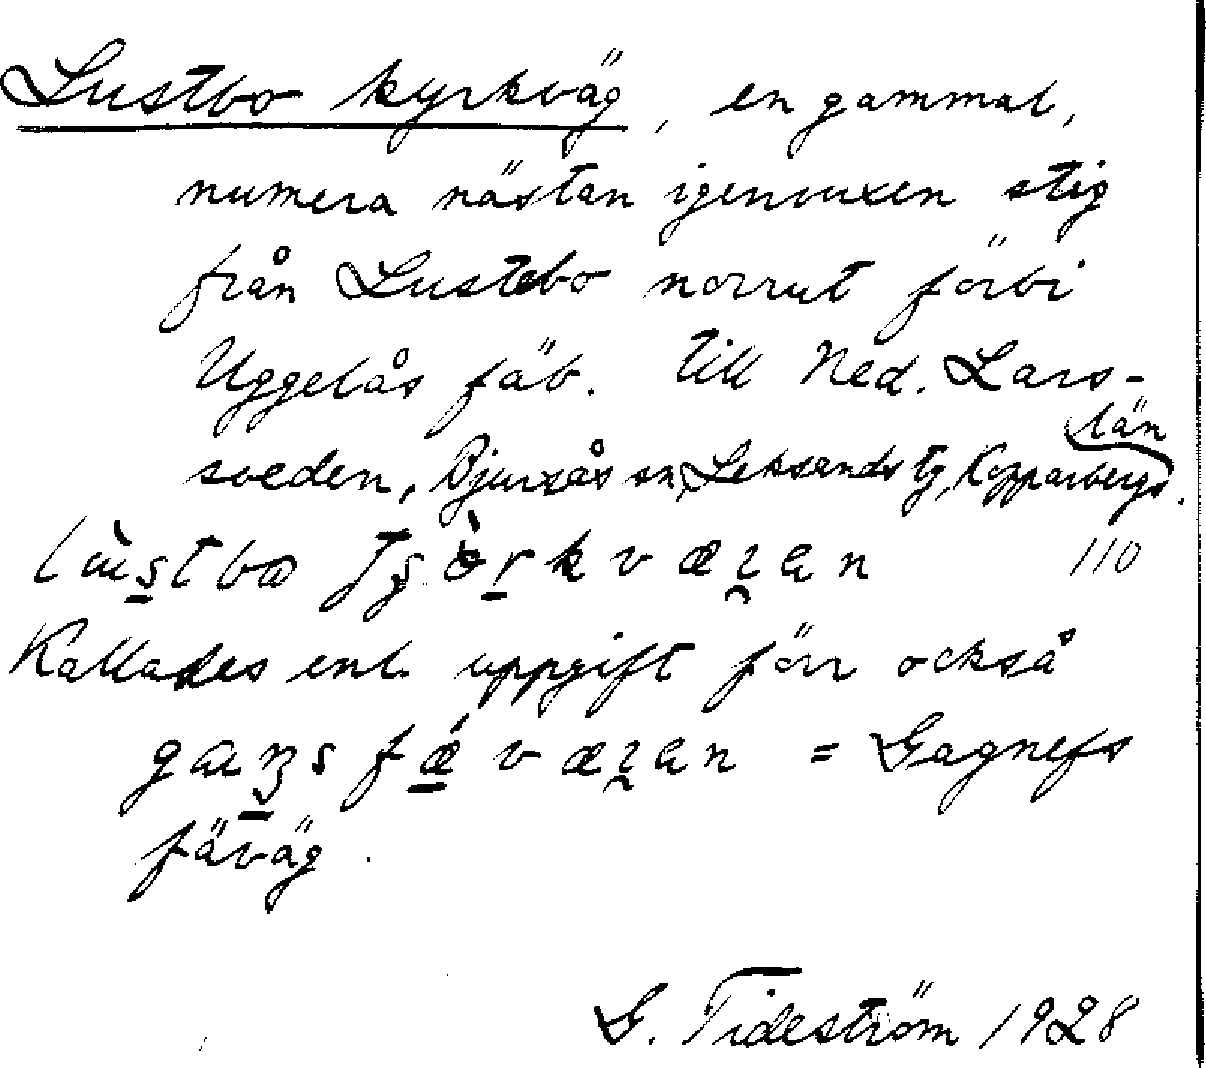 Lustbo kyrkväg, en gammal,
numera nästan igenvuxen stig
från Lustebo norrut förbi
Uggelås fäb. till Ned. Lars-
sveden, Bjursås sn, Leksands tg, Kopparbergs län.
110
Kallades enl. uppgift förr också
= Gagnefs
fäväg.
G. Tideström 1928